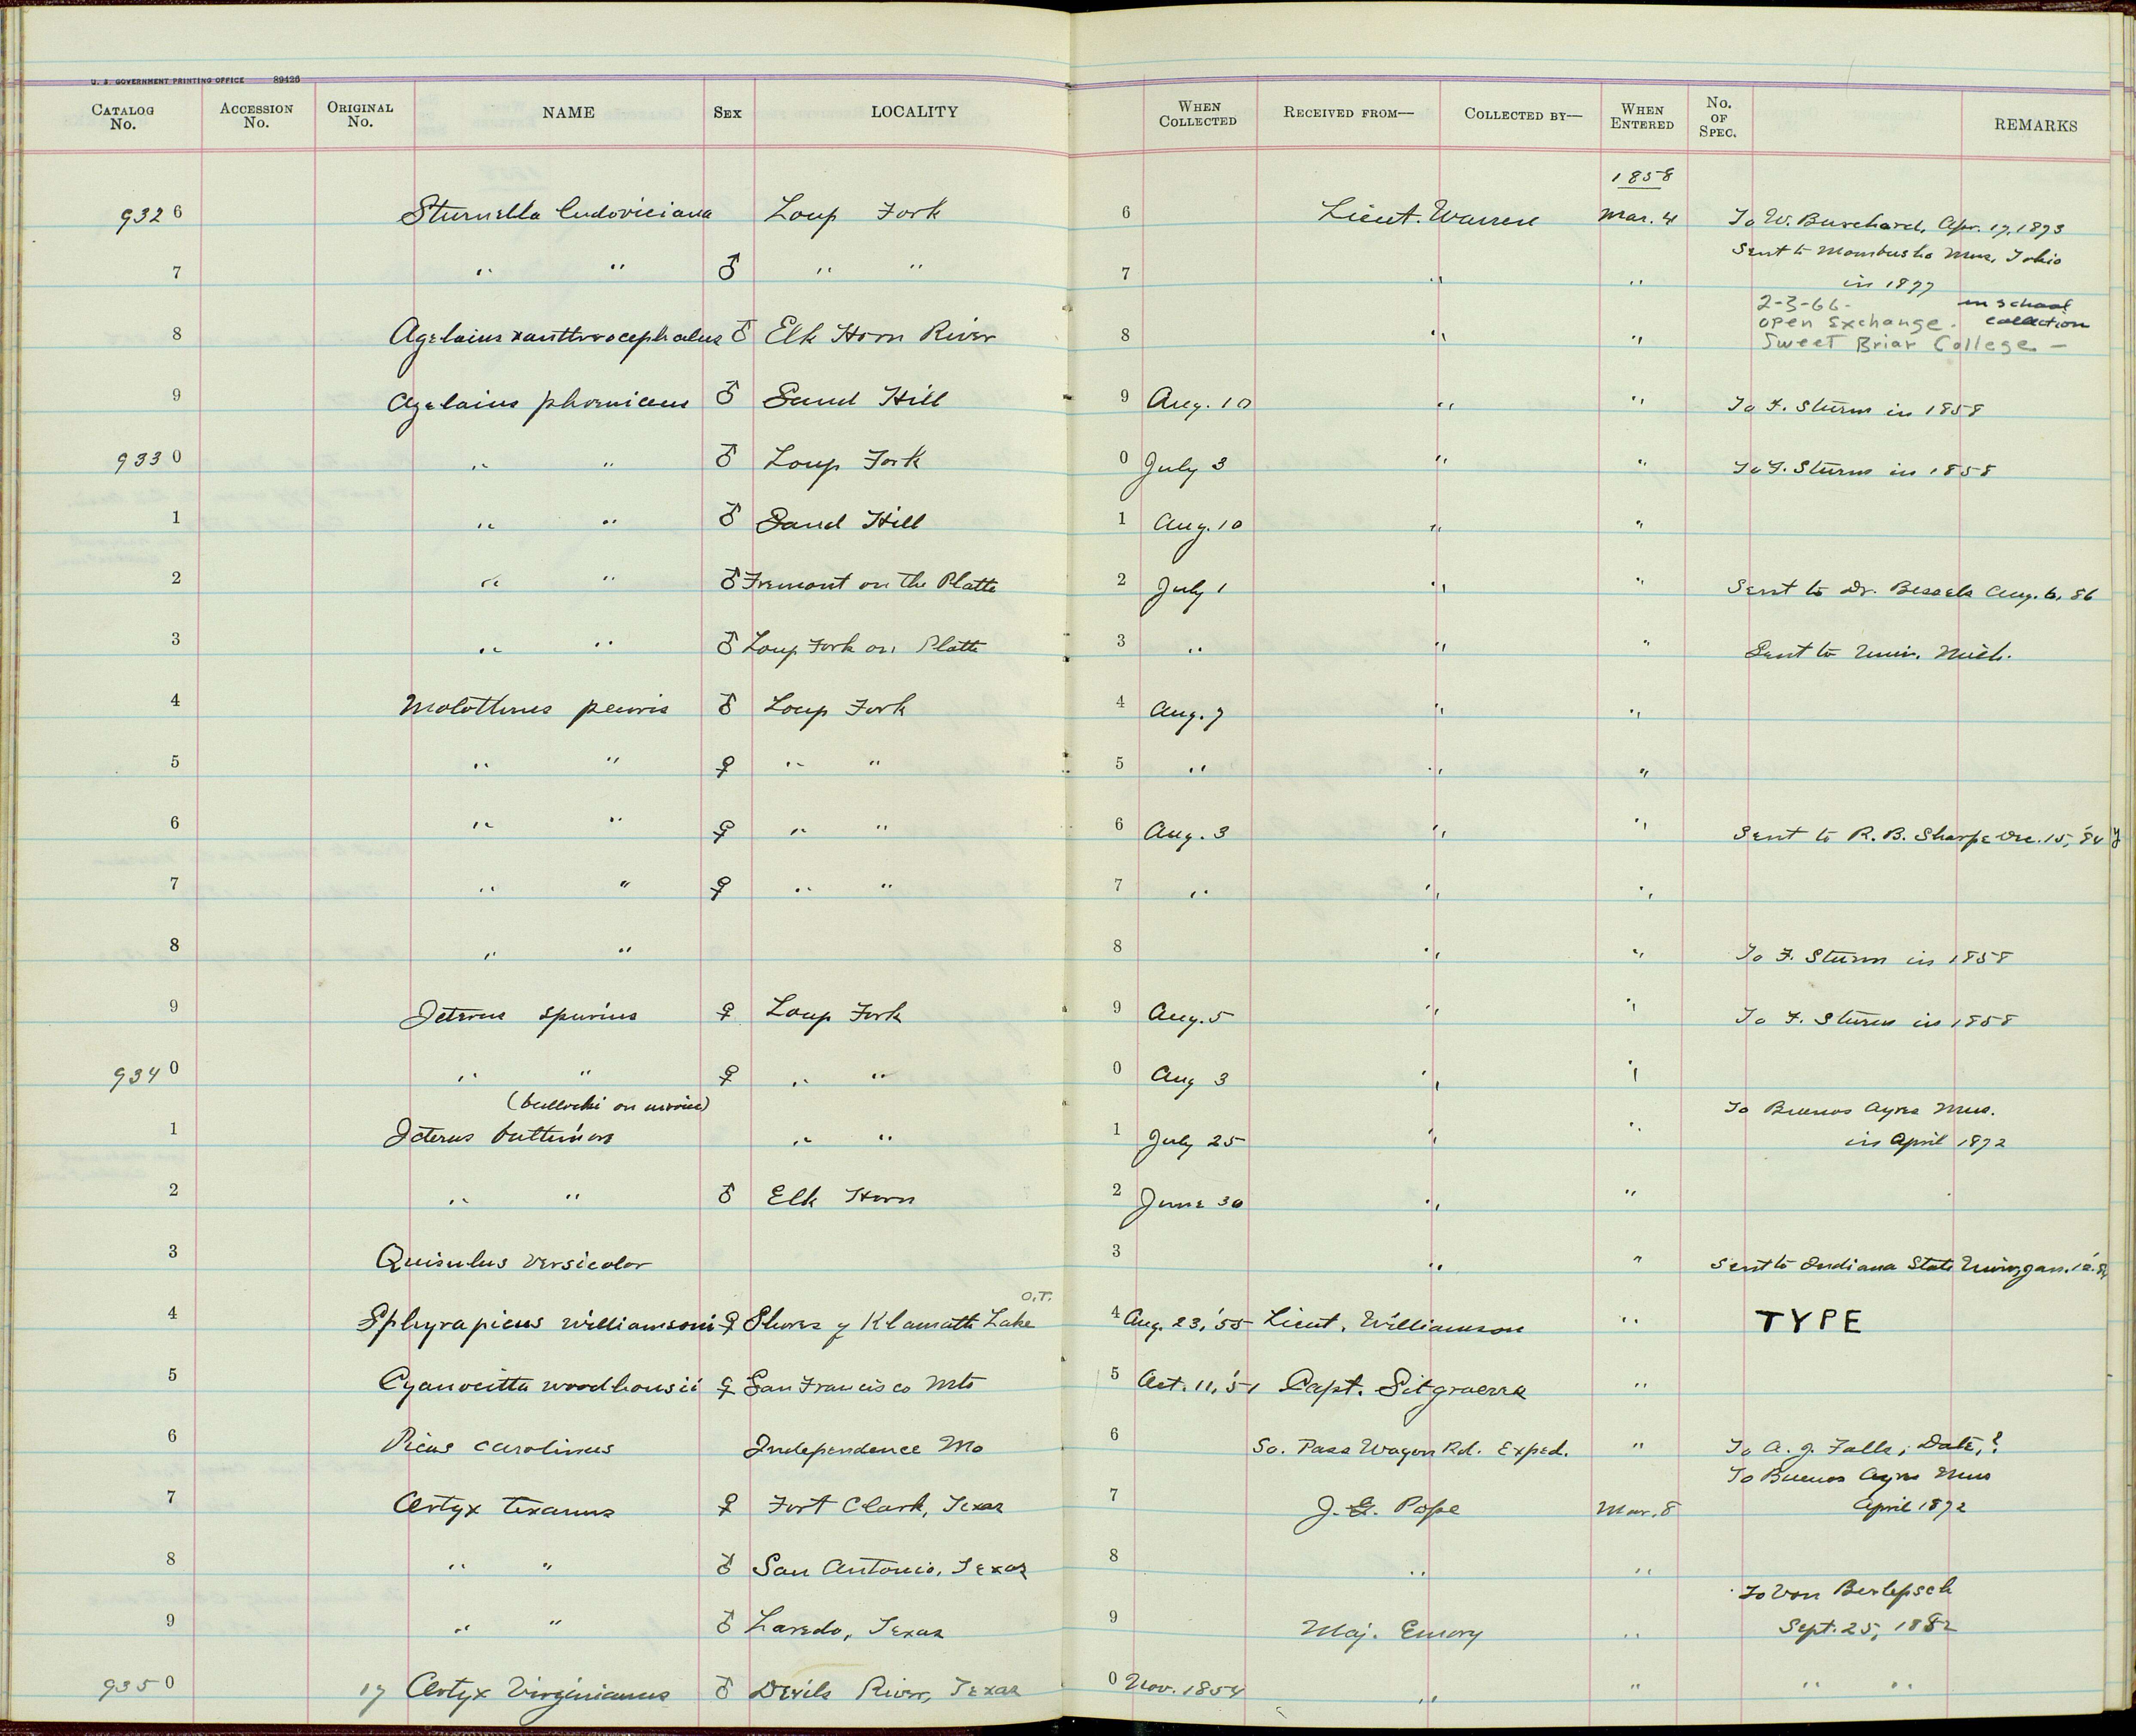 U. S. GOVERNMENT PRINTING OFFICE 89426
CATALOG No. ACCESSION No. ORIGINAL No. NAME SEX LOCALITY WHEN COLLECTED RECEIVED FROM— COLLECTED BY— WHEN ENTERED No. OF SPEC. REMARKS
1858
9326 Sturnella ludoviciana Loup Fork 6 Lieut. Warren Mar. 4 To W. Burchard, Apr. 17, 1873
Sent to Mombusho Mus. Tokio
7 " " ♂ " " 7 " " in 1877
2-3-66- in school
8 Agelaius xanthrocephalus ♂ Elk Horn River 8 " " open Exchange. collection
Sweet Briar College —
9 Agelaius phoeniceus ♂ Sand Hill 9 Aug. 10 " " To F. Sturm in 1858
9330 " " ♂ Loup Fork 0 July 3 " " To F. Sturm in 1858
1 " " ♂ Sand Hill 1 Aug. 10 " "
2 " " ♂ Fremont on the Platte 2 July 1 " " Sent to Dr. Bessels Aug. 6, 86
3 " " ♂ Loup Fork on Platte 3 " " " Sent to Univ. Mich.
4 Molothrus pecoris ♂ Loup Fork 4 Aug. 7 " "
5 " " ♀ " " 5 " " "
6 " " ♀ " " 6 Aug. 3 " " Sent to R. B. Sharpe Dec. 15, '84
7 " " ♀ " " 7 " " "
8 " " 8 " " To F. Sturm in 1858
9 Icterus spurius ♀ Loup Fork 9 Aug. 5 " " To F. Sturm in 1858
9340 " " ♀ " " 0 Aug 3 " "
(bullocki on invoice) To Buenos Ayres Mus.
1 Icterus baltimore " " 1 July 25 " " in April 1872
2 " " ♂ Elk Horn 2 June 30 " "
3 Quisculus versicolor 3 " " Sent to Indiana State Univ. Jan.
O.T.
4 Sphyrapicus williamsoni ♀ Shores of Klamath Lake 4 Aug. 23, '55 Lieut. Williamson " TYPE
5 Cyanocitta woodhousii ♀ San Francisco Mts 5 Oct. 11, '51 Capt. Sitgraeves "
6 Picus carolinus Independence Mo 6 So. Pass Wagon Rd. Exped. " To A. J. Falls; Date, ?
To Buenos Ayres Mus
7 Ortyx texanus ♀ Fort Clark, Texas 7 J. G. Pope Mar. 8 April 1872
8 " " ♂ San Antonio, Texas 8 " "
To Von Berlepsch
9 " " ♂ Laredo, Texas 9 Maj. Emory " Sept. 25, 1882
9350 17 Ortyx Virginianus ♂ Devils River, Texas 0 Nov. 1854 " " " "